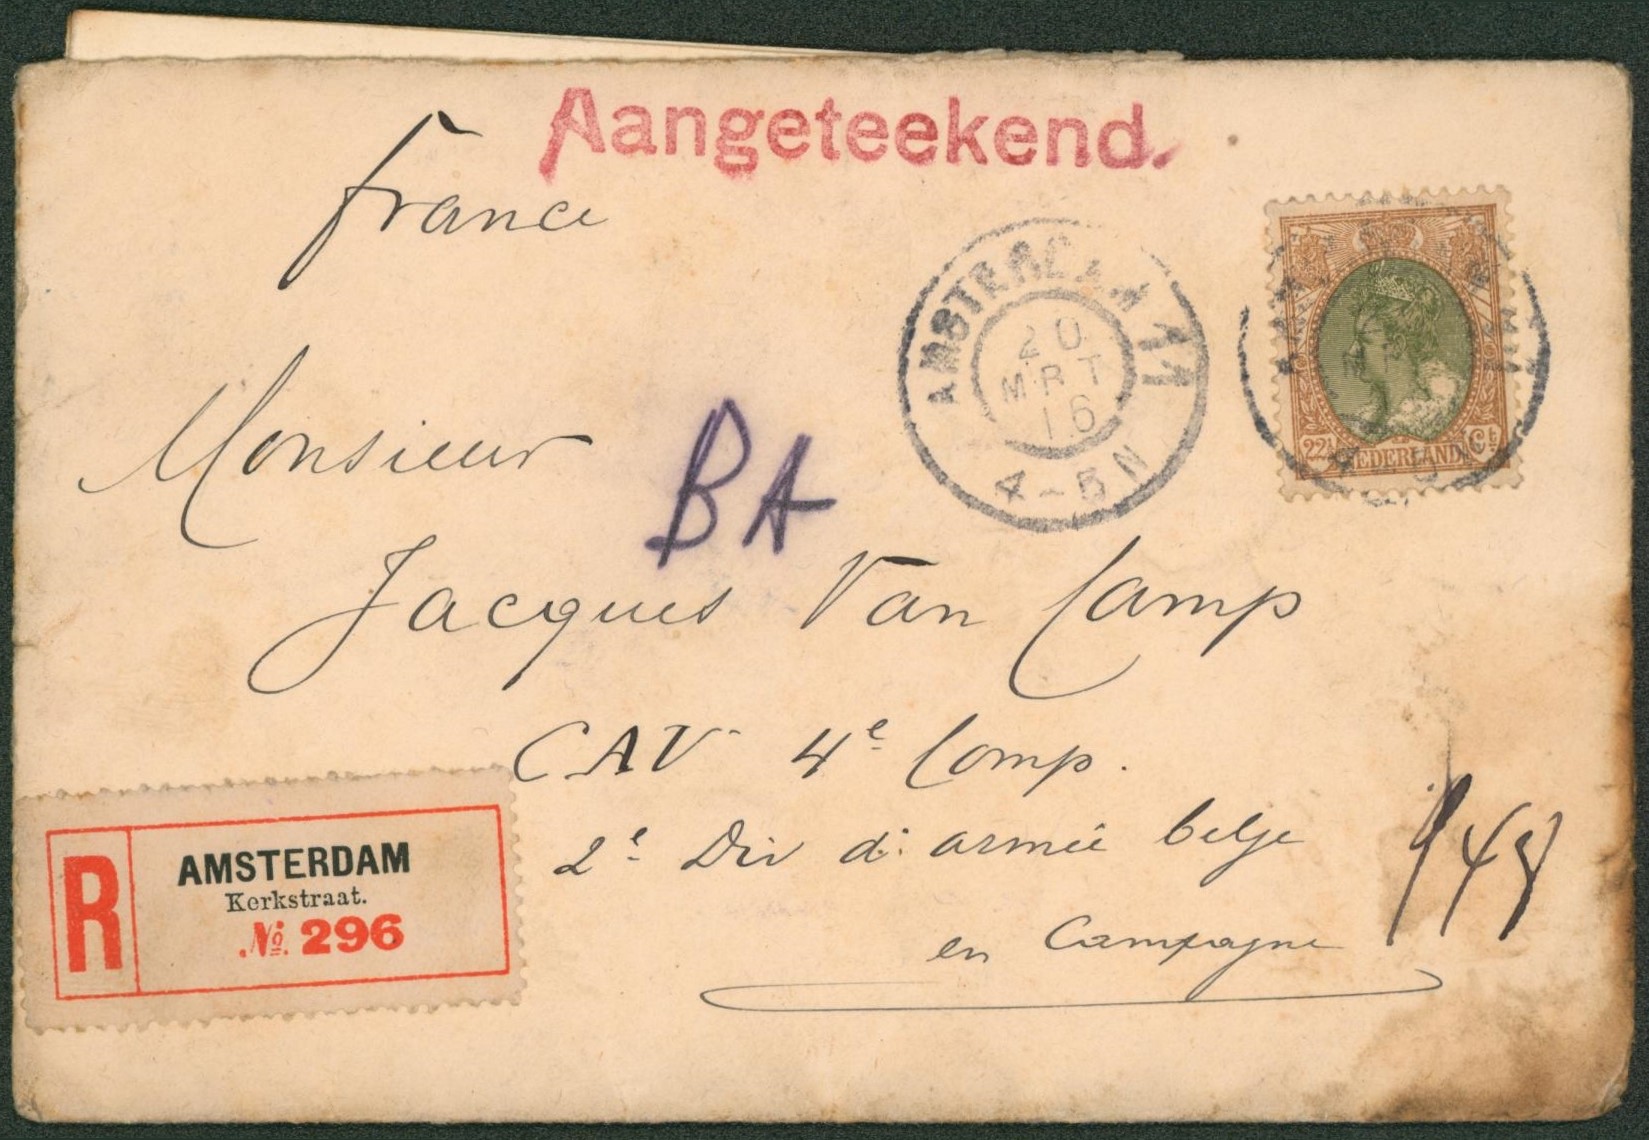 Aangeteekend.
France
AMSTERDAM 11
20
MRT
16
4-5 N
22½ Ct
NEDERLAND
Monsieur
BA
Jacques Van Camp
CAV 4e Comp.
2e Div d'armée belge
en Campagne
R
AMSTERDAM
Kerkstraat.
No. 296